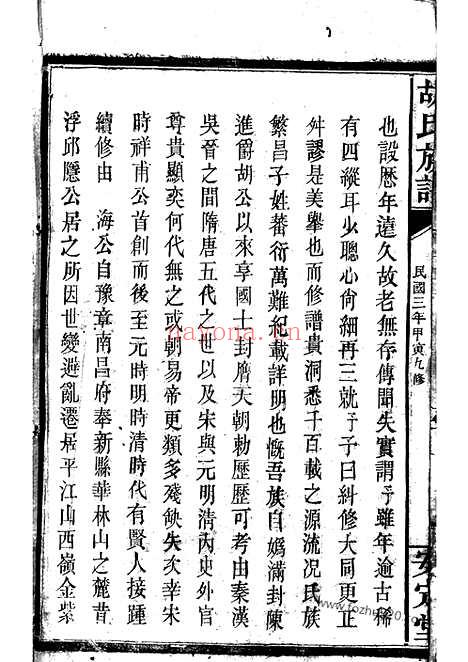 胡氏族譜
民國三年甲寅九修
安定堂
也設歷年遠久故老無存傳聞失實謂予雖年逾古稀
有四縱耳少聰心尚細再三就予予曰糾修大同更正
舛謬是美舉也而修譜貴洞悉千百載之源流况氏族
繁昌子姓蕃衍萬難紀載詳明也慨吾族自媯滿封陳
進爵胡公以來享國十封膺天朝勅歷歷可考由秦漢
吳晉之間隋唐五代之世以及宋與元明清內史外官
尊貴顯奕何代無之或朝易帝更類多殘缺失次幸宋
時祥甫公首創而後至元時明時清時代有賢人接踵
續修由 海公自豫章南昌府奉新縣華林山之麓昔
浮邱隱公居之所因世變避亂遷居平江山西嶺金紫
nayona.cn